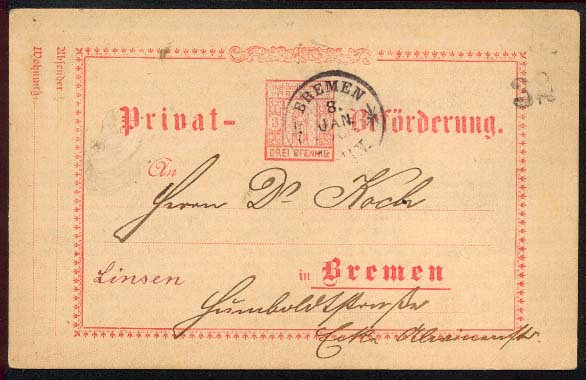 Absender:
Wohnung:
32
Privat-Beförderung.
3
DREI PFENNIG
BREMEN
8.
JAN.
An
Herrn Dr Koch
Linsen
in Bremen
Humboldtstraße
Ecke